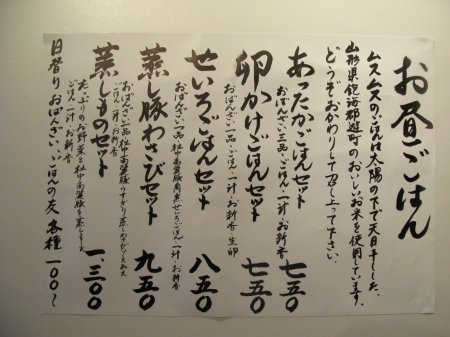 お昼ごはん
ムスムスのごはんは太陽の下で天日干しした、
山形県飽海郡遊佐町のおいしいお米を使用しています。
どうぞおかわりして召し上って下さい。
あったかごはんセット 七五〇
おばんざい三品・ごはん・一汁・お新香
卵かけごはんセット 七五〇
おばんざい一品・ごはん・一汁・お新香・生卵
せいろごはんセット 八五〇
おばんざい一品・杜中高麗豚角煮せいろごはん・一汁・お新香
蒸し豚わさびセット 九五〇
おばんざい一品・杜中高麗豚うすぎり蒸・わさびソース
ごはん・一汁・お新香
蒸しものセット 一、三〇〇
たっぷりのお野菜と杜中高麗豚を蒸します
ごはん・一汁・お新香
日替り おばんざい、ごはんの友 各種 一〇〇〜